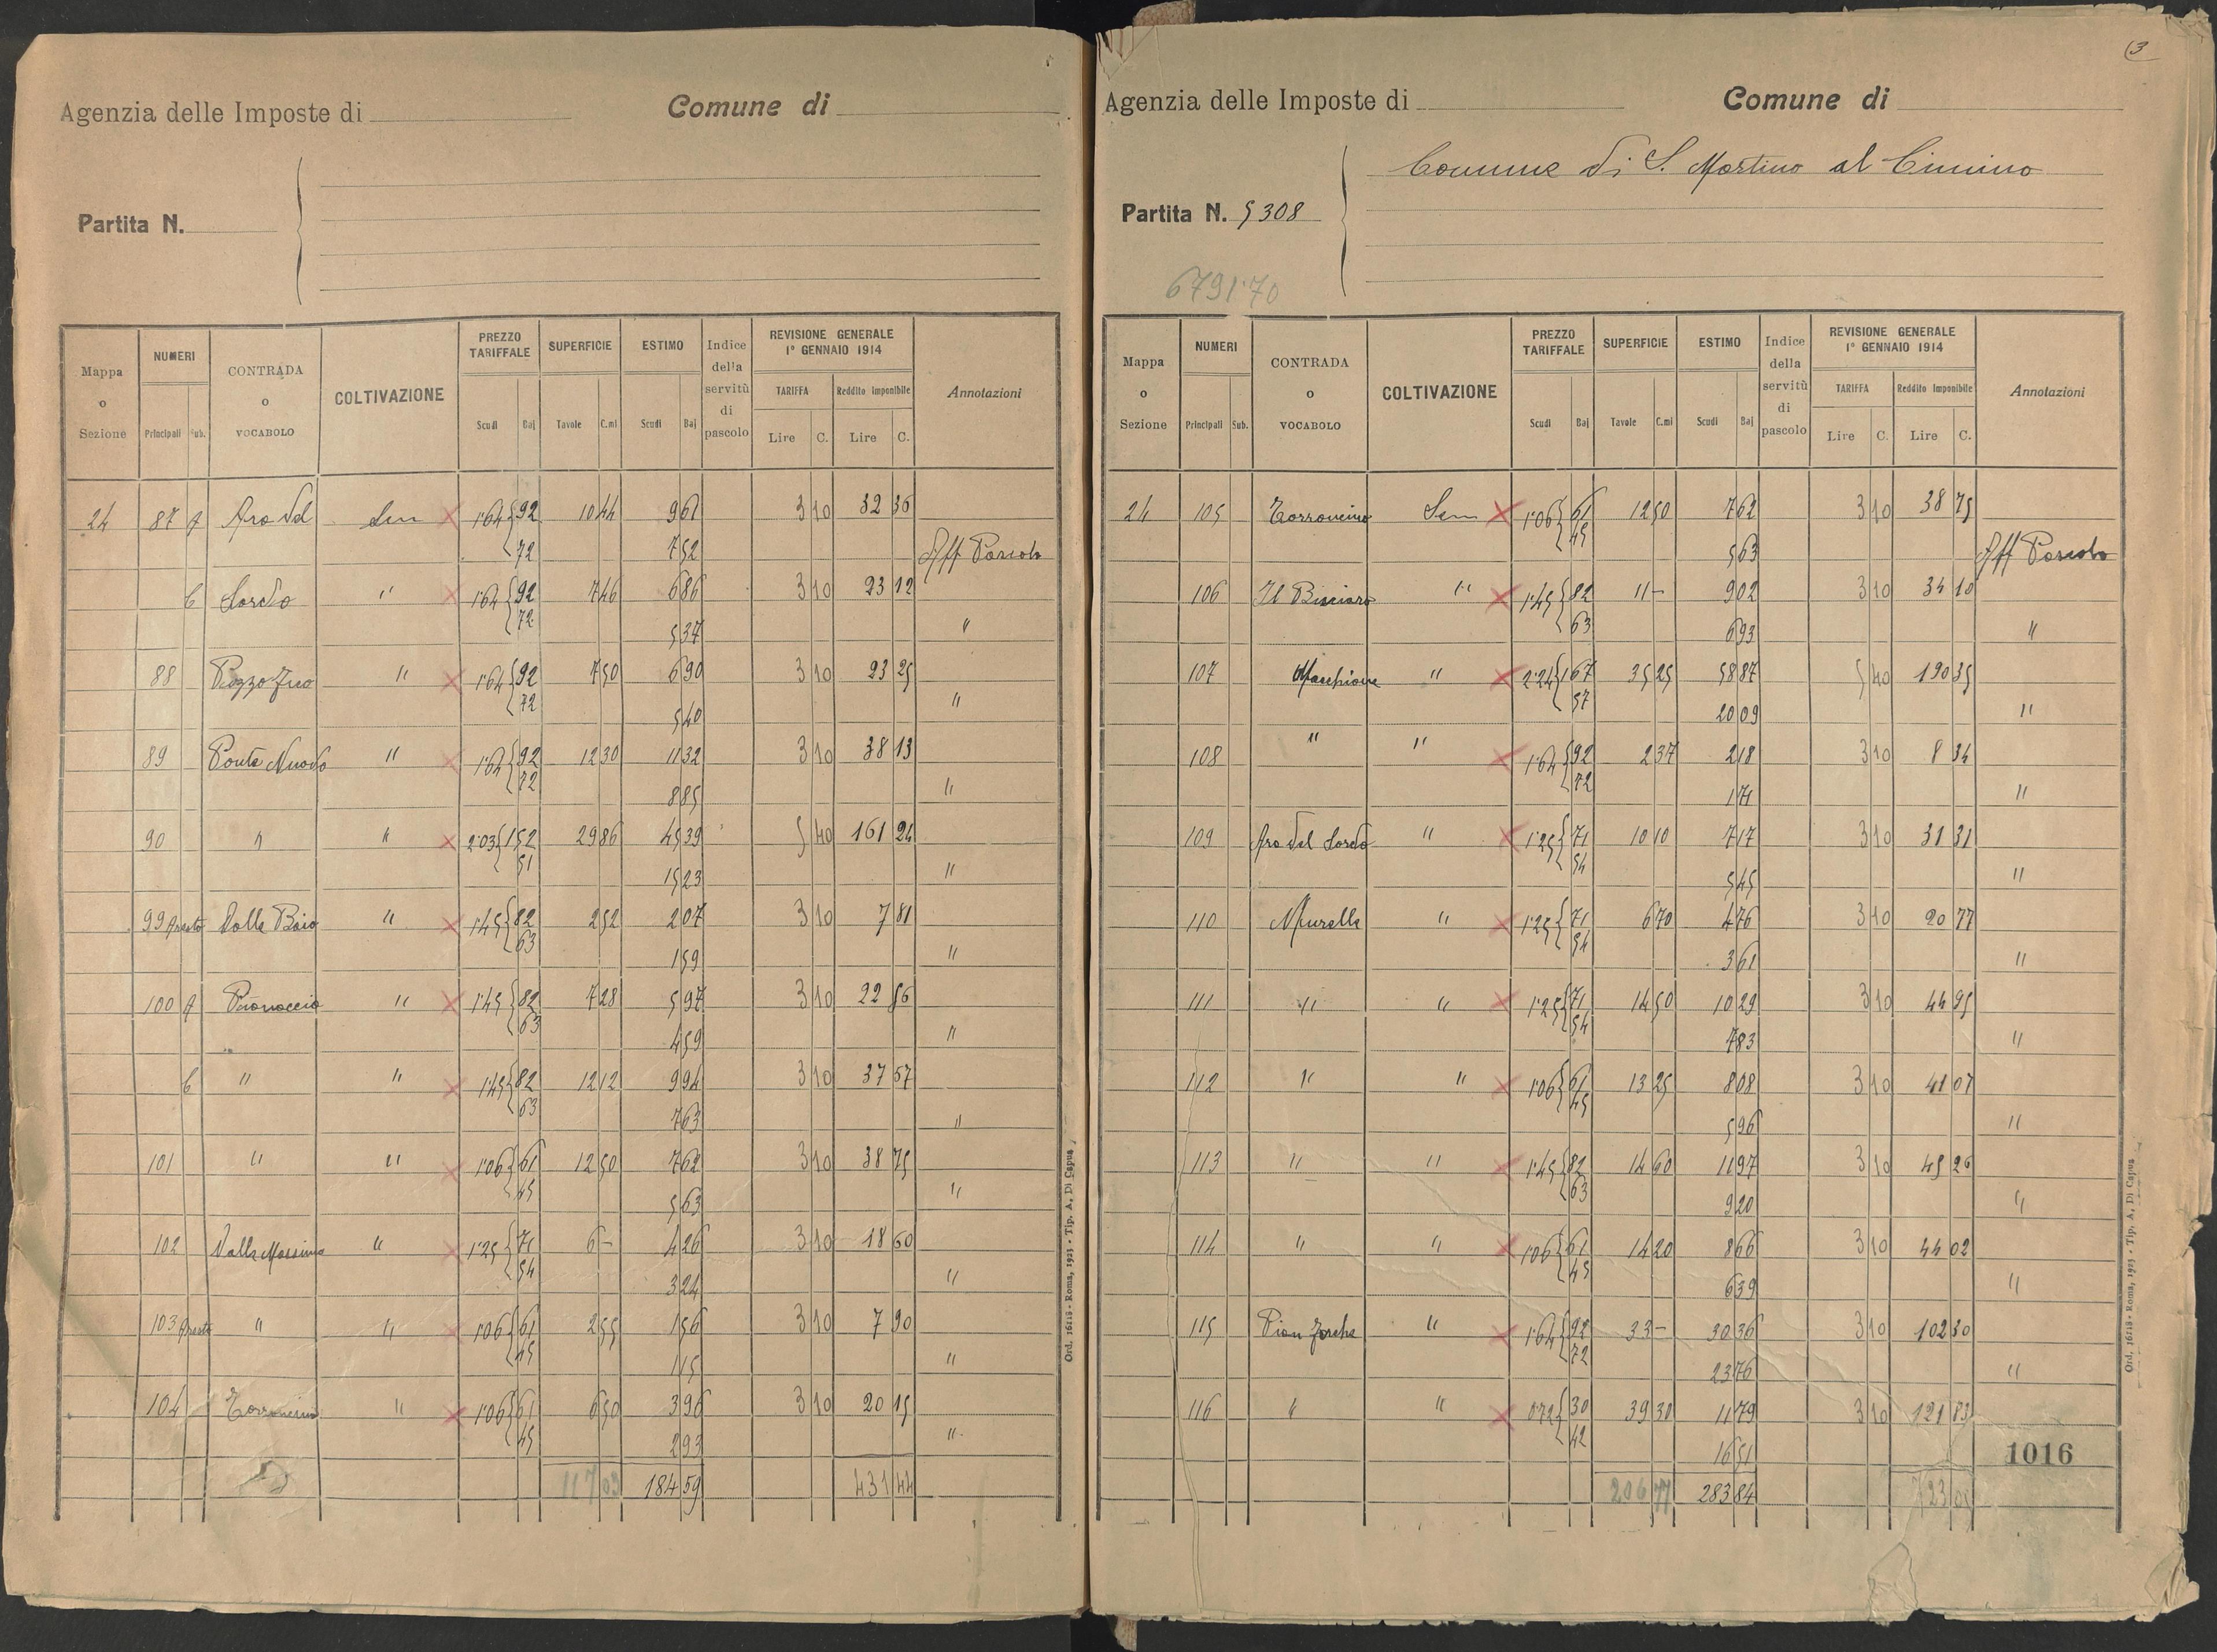 Agenzia delle Imposte di Comune di
Partita N.
Mappa o Sezione NUMERI Principali Sub. CONTRADA o VOCABOLO COLTIVAZIONE PREZZO TARIFFALE Scudi Baj SUPERFICIE Tavole C.mi ESTIMO Scudi Baj Indice della servitù di pascolo REVISIONE GENERALE 1° GENNAIO 1914 TARIFFA Lire C. Reddito Imponibile Lire C. Annotazioni
24 87 Ara del Sem 1.64 { 92 10 44 9 61 3 10 32 36
72 7 52 Aff Pascolo
b Sordo " 1.64 { 92 7 46 6 86 3 10 23 12
72 5 37 "
88 Pozzo " 1.64 { 92 7 50 6 90 3 10 23 25
72 5 40 "
89 Ponte Nuovo " 1.64 { 92 12 30 11 32 3 10 38 13
72 8 85 "
90 " " 2.03 { 1 52 29 86 45 39 5 40 161 24
51 15 23 "
99 Valle " 1.45 { 82 2 52 2 07 3 10 7 81
63 1 59 "
100 " 1.45 { 82 7 28 5 97 3 10 22 56
63 4 59 "
b " " 1.45 { 82 12 12 9 94 3 10 37 57
63 7 63 "
101 " " 1.06 { 61 12 50 7 62 3 10 38 75
45 5 63 "
102 Valle Massima " 1.25 { 71 6 – 4 26 3 10 18 60
54 3 24 "
103 " " 1.06 { 61 2 55 1 56 3 10 7 90
45 1 15 "
104 Torroncino " 1.06 { 61 6 50 3 96 3 10 20 15
45 2 93 "
117 03 184 59 431 44
Ord. 16118 - Roma, 1923 - Tip. A. Di Capua
3
Agenzia delle Imposte di Comune di
Comune di S. Martino al Cimino
Partita N. 5308
6791.70
Mappa o Sezione NUMERI Principali Sub. CONTRADA o VOCABOLO COLTIVAZIONE PREZZO TARIFFALE Scudi Baj SUPERFICIE Tavole C.mi ESTIMO Scudi Baj Indice della servitù di pascolo REVISIONE GENERALE 1° GENNAIO 1914 TARIFFA Lire C. Reddito Imponibile Lire C. Annotazioni
24 105 Torroncino Sem 1.06 { 61 12 50 7 62 3 10 38 75
45 5 63 Aff Pascolo
106 Il Bisciaro " 1.45 { 82 11 – 9 02 3 10 34 10
63 6 93 "
107 Macchione " 2.24 { 1 67 35 25 58 87 5 40 190 35
57 20 09 "
108 " " 1.64 { 92 2 37 2 18 3 10 8 34
72 1 71 "
109 Ara del Sordo " 1.25 { 71 10 10 7 17 3 10 31 31
54 5 45 "
110 Murelle " 1.25 { 71 6 70 4 76 3 10 20 77
54 3 61 "
111 " " 1.25 { 71 14 50 10 29 3 10 44 95
54 7 83 "
112 " " 1.06 { 61 13 25 8 08 3 10 41 07
45 5 96 "
113 " " 1.45 { 82 14 60 11 97 3 10 45 26
63 9 20 "
114 " " 1.06 { 61 14 20 8 66 3 10 44 02
45 6 39 "
115 Pian " 1.64 { 92 33 – 30 36 3 10 102 30
72 23 76 "
116 " " 0.72 { 30 39 30 11 79 3 10 121 83
42 16 51
1016
206 77 283 84 723 05
Ord. 16118 - Roma, 1923 - Tip. A. Di Capua